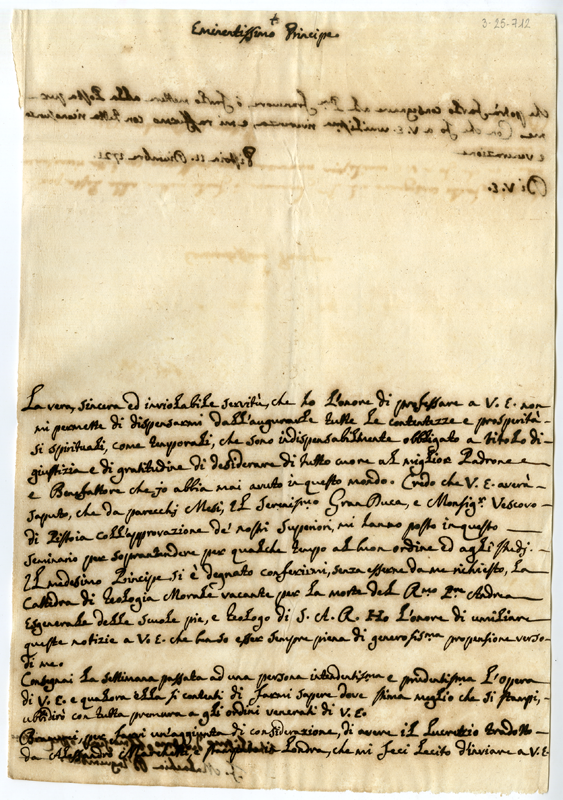 3-25-712
Eminentissimo Principe
La vera, sincera ed inviolabile servitù, che ho l'onore di professare a V. E. non
mi permette di dispensarmi dall'augurarle tutte le contentezze e prosperità
sì spirituali, come temporali, che sono indispensabilmente obbligato a titolo di
giustizia e di gratitudine di desiderare di tutto cuore al miglior Padrone e
e Benefattore che jo abbia mai avuto in questo mondo. Credo che V. E. averà
saputo, che da parecchj Mesi, il Serenissimo Gran Duca, e Monsig.r Vescovo
di Pistoia coll'approvazione de' nostri Superiori, mi hanno posto in questo
seminario per soprantendere per qualche tempo al buon ordine ed agli studj.
Il medesimo Principe si è degnato conferirmi, senza esserne da me richiesto, la
Cattedra di teologia Morale vacante per la morte del R.mo P.re Andrea
Exgenerale delle Scuole pie, e teologo di S. A. R. Ho l'onore di umiliare
queste notizie a V. E. che ha so esser sempre piena di generosissma propensione verso
di me.
Consegnai la settimana passata ad una persona intendentissma e prudentissma l'opera
di V. E. e qualora ella si contenti di farmi sapere dove stima meglio che si stampi,
ubbidirò con tutta premura a gli ordini venerati di V. E.
per farvi un'aggiunta di considerazione, di avere il Lucrezio tradotto
da Londra, che mi feci lecito d'inviare a V. E.
che potrà farlo consegnare al P.re o farlo mettere alla Posta per
me. Con che fo a V. E. umilissma riverenza, e mi raffermo con tutta
e venerazione
Di V. E.
Pistoia 22. Dicembre 1721.